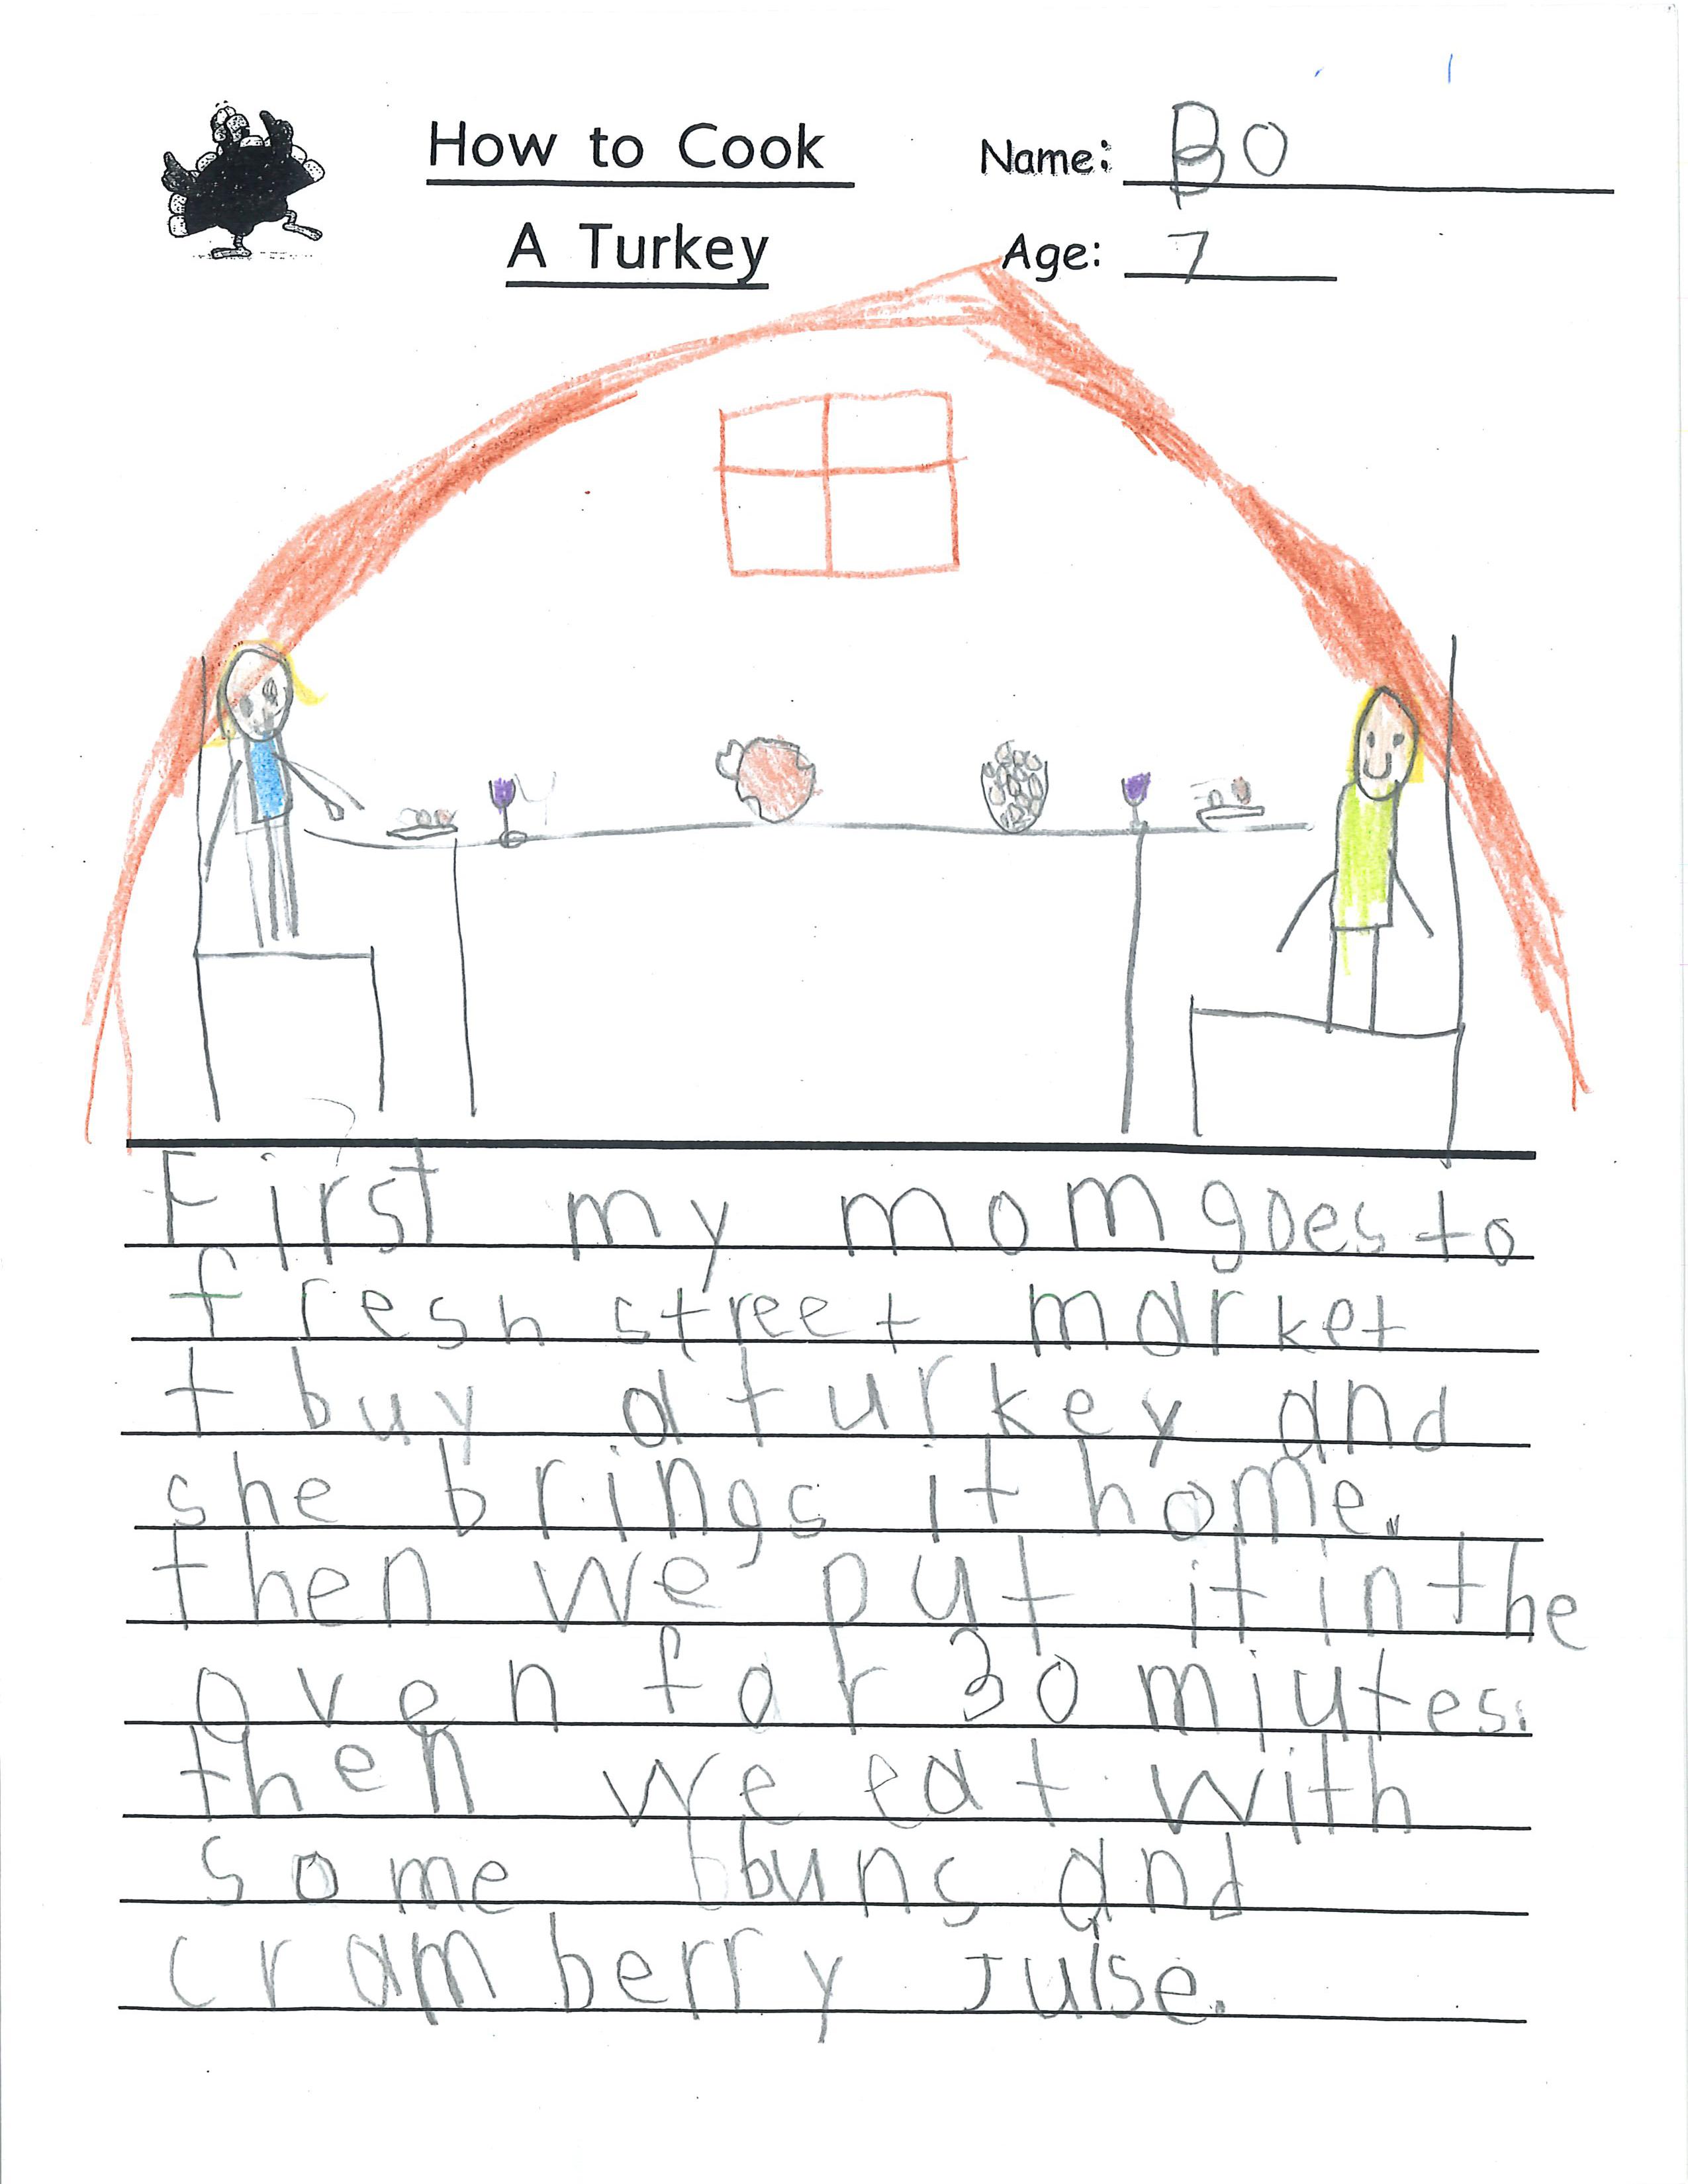 How to Cook
A Turkey
Name: Bo
Age: 7
First my mom goes to
fresh street market
t buy a turkey and
she brings it home.
then we put it in the
oven for 30 miutes.
then we eat with
some buns and
cramberry julse.